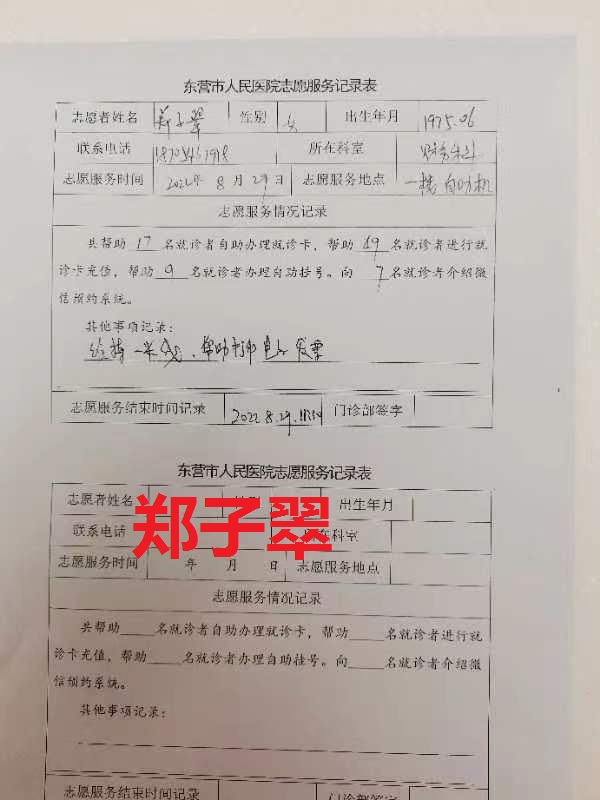 东营市人民医院志愿服务记录表
志愿者姓名 郑子翠 性别 女 出生年月 1975.06
联系电话 所在科室 财务科
志愿服务时间 2022年 8 月 29 日 志愿服务地点 一楼自助机
志愿服务情况记录
共帮助 17 名就诊者自助办理就诊卡，帮助 19 名就诊者进行就
诊卡充值，帮助 9 名就诊者办理自助挂号。向 7 名就诊者介绍微
信预约系统。
其他事项记录：
维持一米线、帮助打印电子发票
志愿服务结束时间记录 2022.8.29. 门诊部签字
东营市人民医院志愿服务记录表
志愿者姓名 性别 出生年月
联系电话 所在科室
郑子翠
志愿服务时间 年 月 日 志愿服务地点
志愿服务情况记录
共帮助____名就诊者自助办理就诊卡，帮助____名就诊者进行就
诊卡充值，帮助____名就诊者办理自助挂号。向____名就诊者介绍微
信预约系统。
其他事项记录：
志愿服务结束时间记录 门诊部签字